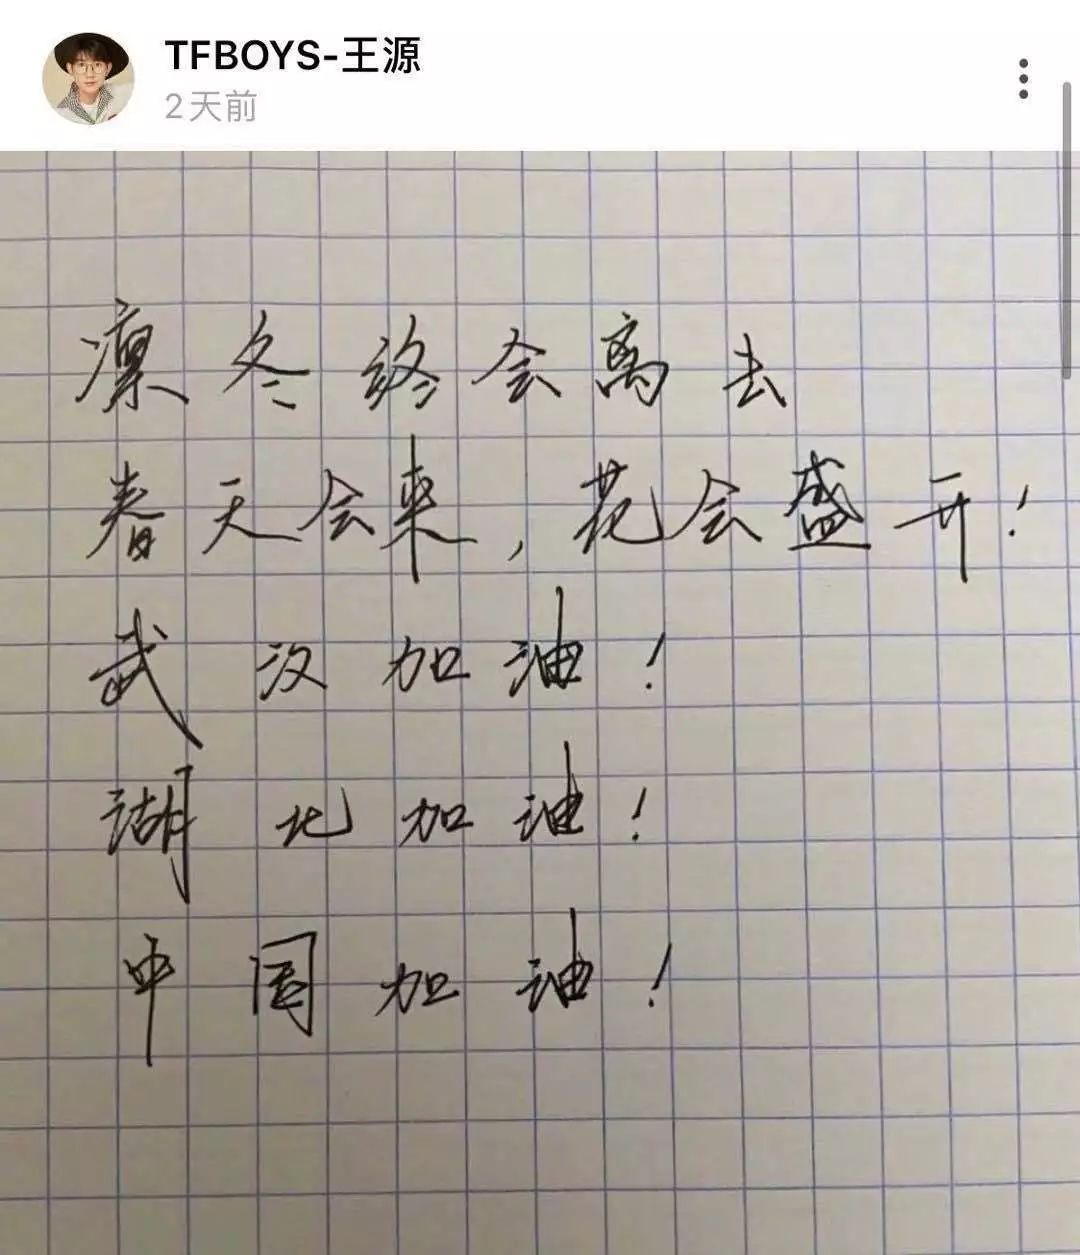 TFBOYS-王源
2天前
凛冬终会离去
春天会来,花会盛开!
武汉加油!
湖北加油!
中国加油!